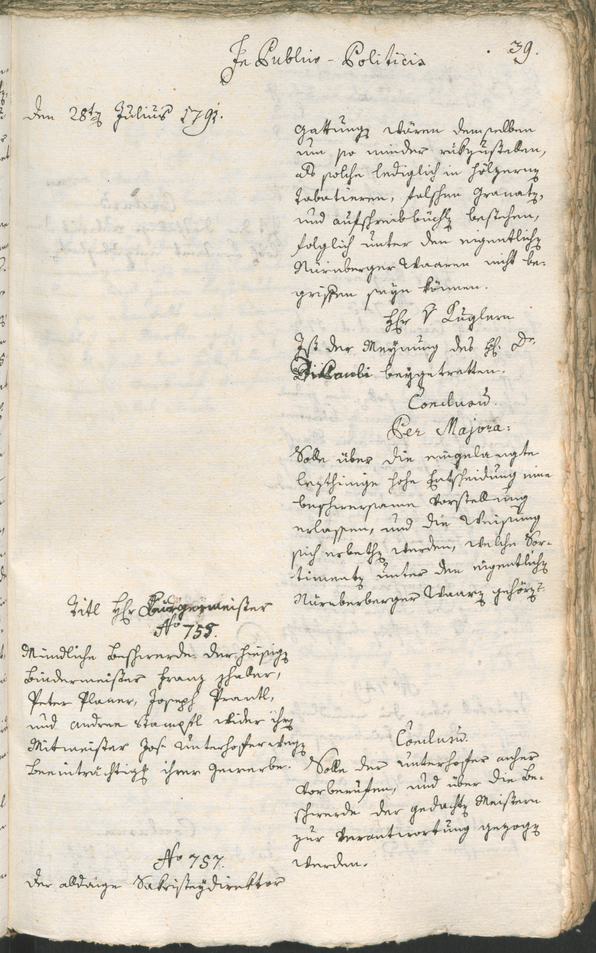 In Publico-Politicis
39.
Den 28ten Julius 1791.
Gattung wären demselben
um so minder rükzustellen,
als solche lediglich in hölzerne
Tabatieren, falschen Granaten,
und aufschreibbüchl bestehen,
folglich unter den eigentlichen
Nürnberger Waaren nicht be-
griffen seyn können.
Hr v Kuglern
Ist der Meynung des H. Dr.
DiPauli beygetretten.
Conclusum.
Per Majora:
Solle über die eingelangte
lezthinige hohe Entscheidung eine
beschwersame Vorstellung
erlassen, und die Weisung
sich erbethen werden, welche Sor-
timente unter den eigentlichen
Nürnberger Waaren gehören.
Titl Hr Burgermeister
No 755.
Mündliche Beschwerde der hiesigen
Bindermeister Franz
Peter Planer, Joseph Prantl,
und Andree Stampfl wider ihren
Mitmeister Jos. Unterhofer wegen
Beeinträchtigk ihrer Gewerbe.
Conclusum.
Solle der Unterhofer anher
vorberuffen, und über die Be-
schwerde der gedachten Meistern
zur Verantwortung gezogen
werden.
No 757.
Der alldaige Sakristeydirektor